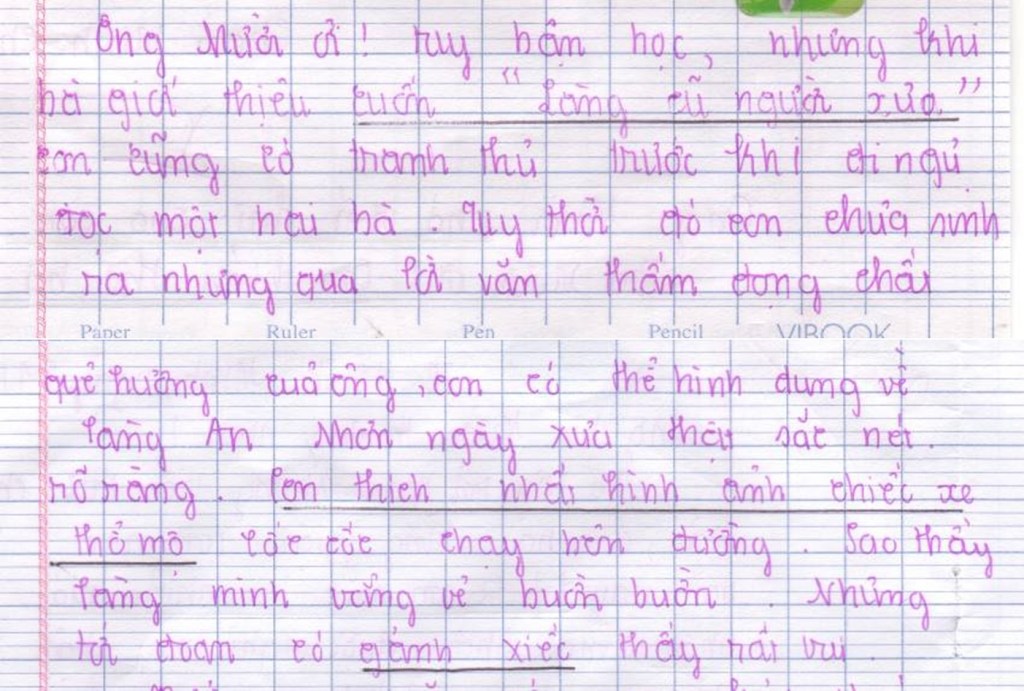 Ông Mười ơi! tuy bận học, nhưng khi
bà giới thiệu cuốn "Làng cũ người xưa"
con cũng cố tranh thủ trước khi đi ngủ
đọc một hai bà. Tuy thời đó con chưa sinh
ra nhưng qua lời văn thấm đọng chất
Paper Ruler Pen Pencil VIBOOK
quê hương của ông, con có thể hình dung về
làng An Nhơn ngày xưa thật sắc nét.
rõ ràng. Con thích nhất hình ảnh chiếc xe
thổ mộ cóc cóc chạy bên đường. Sao thấy
làng mình vắng vẻ buồn buồn. Nhưng
tới đoạn có gánh xiếc thấy rất vui.